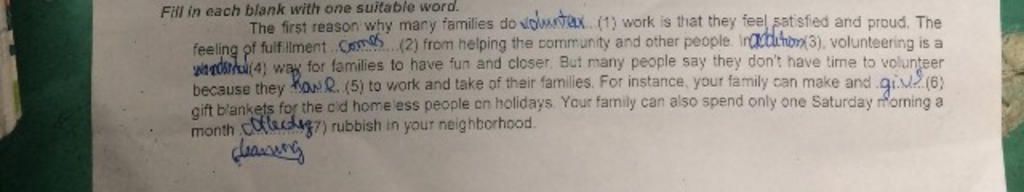 Fill in each blank with one suitable word.
The first reason why many families do volunteer (1) work is that they feel satisfied and proud. The
feeling of fulfillment ..comes....(2) from helping the community and other people. In addition(3), volunteering is a
wonderful(4) way for families to have fun and closer. But many people say they don't have time to volunteer
because they have..(5) to work and take of their families. For instance, your family can make and .give..(6)
gift blankets for the old homeless people on holidays. Your family can also spend only one Saturday morning a
month collecting(7) rubbish in your neighborhood.
cleaning